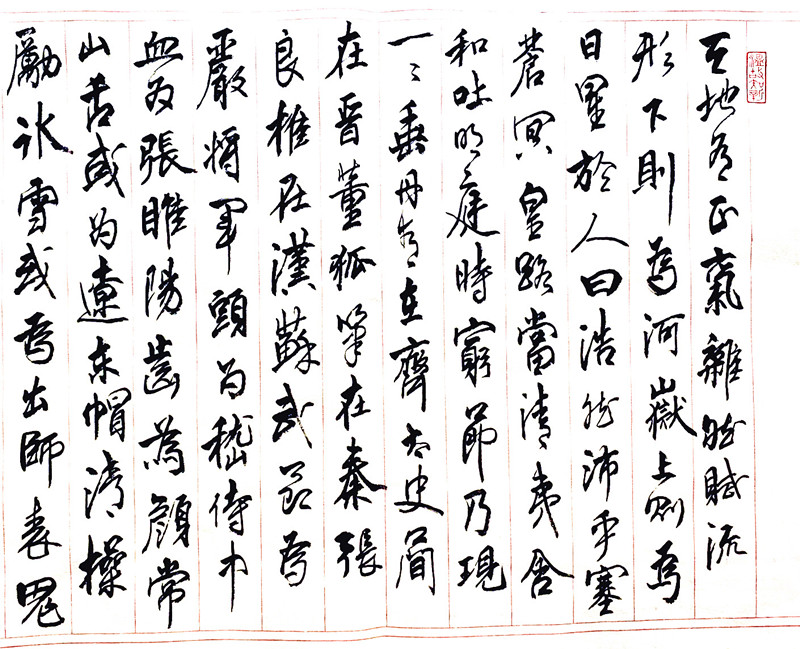 天地有正氣雜然賦流
形下則為河嶽上則為
日星於人曰浩然沛乎塞
蒼冥皇路當清夷含
和吐明庭時窮節乃現
一々垂丹青在齊太史簡
在晉董狐筆在秦張
良椎在漢蘇武節為
嚴將軍頭為嵇侍中
血為張睢陽齒為顏常
山舌或为遼東帽清操
勵冰雪或為出師表鬼